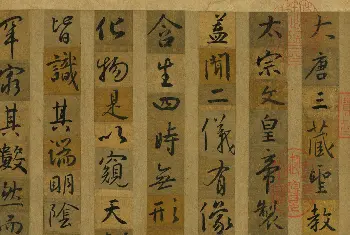 大唐三藏聖教
太宗文皇帝製
蓋聞二儀有像
含生四時無形
化物是以窺天
皆識其端明陰
罕窮其數然而